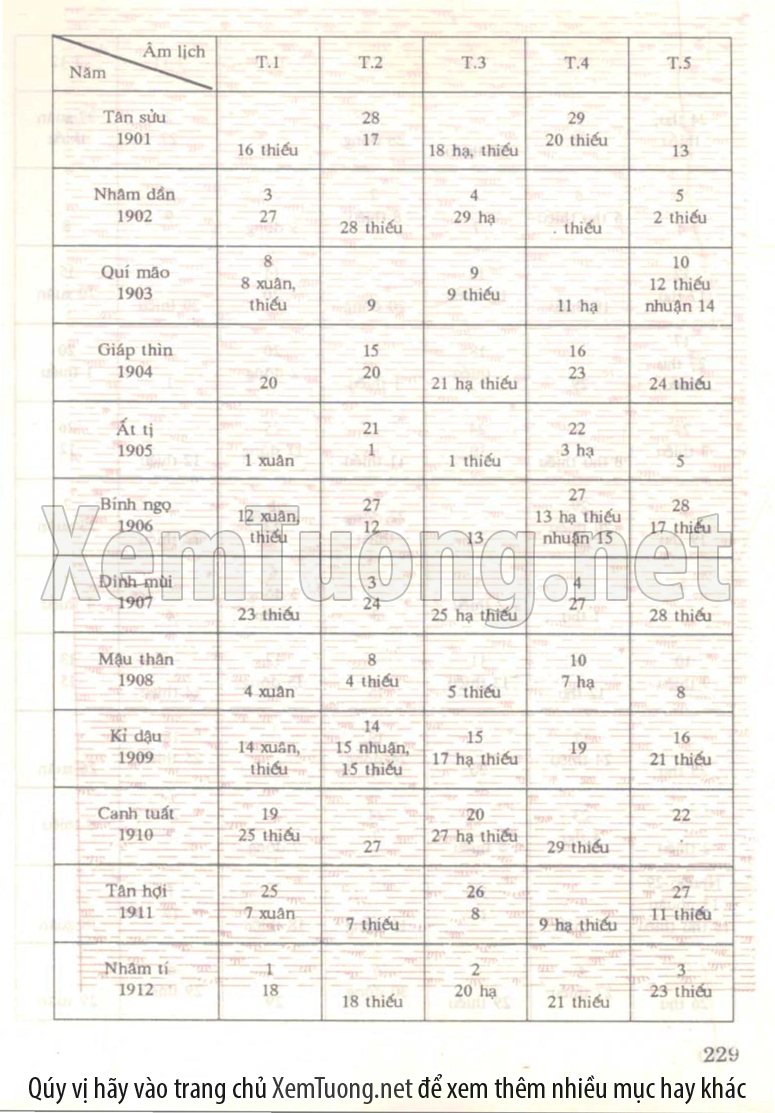 Âm lịch
Năm
T.1
T.2
T.3
T.4
T.5
Tân sửu
1901
16 thiếu
28
17
18 hạ, thiếu
29
20 thiếu
13
Nhâm dần
1902
3
27
28 thiếu
4
29 hạ
. thiếu
5
2 thiếu
Quí mão
1903
8
8 xuân,
thiếu
9
9
9 thiếu
11 hạ
10
12 thiếu
nhuận 14
Giáp thìn
1904
20
15
20
21 hạ thiếu
16
23
24 thiếu
Ất tị
1905
1 xuân
21
1
1 thiếu
22
3 hạ
5
Bính ngọ
1906
12 xuân,
thiếu
27
12
13
27
13 hạ thiếu
nhuận 15
28
17 thiếu
Đinh mùi
1907
23 thiếu
3
24
25 hạ thiếu
4
27
28 thiếu
Mậu thân
1908
4 xuân
8
4 thiếu
5 thiếu
10
7 hạ
8
Kỉ dậu
1909
14 xuân,
thiếu
14
15 nhuận,
15 thiếu
15
17 hạ thiếu
19
16
21 thiếu
Canh tuất
1910
19
25 thiếu
27
20
27 hạ thiếu
29 thiếu
22
Tân hợi
1911
25
7 xuân
7 thiếu
26
8
9 hạ thiếu
27
11 thiếu
Nhâm tí
1912
1
18
18 thiếu
2
20 hạ
21 thiếu
3
23 thiếu
XemTuong.net
229
Qúy vị hãy vào trang chủ XemTuong.net để xem thêm nhiều mục hay khác